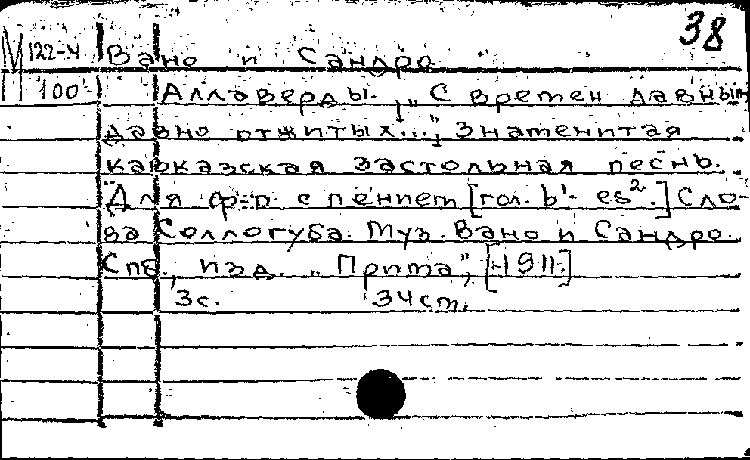 38
М 122-4 Вано и Сандро
100 Аллаверды. „С времен давным
давно отжитых...“, знаменитая
кавказская застольная песнь.
Для ф-п. с пением [гол. b¹- es².] Сло-
ва Соллогуба. Муз. Вано и Сандро.
Спб., изд. „Прима“, [1911.]
3с. 34см.